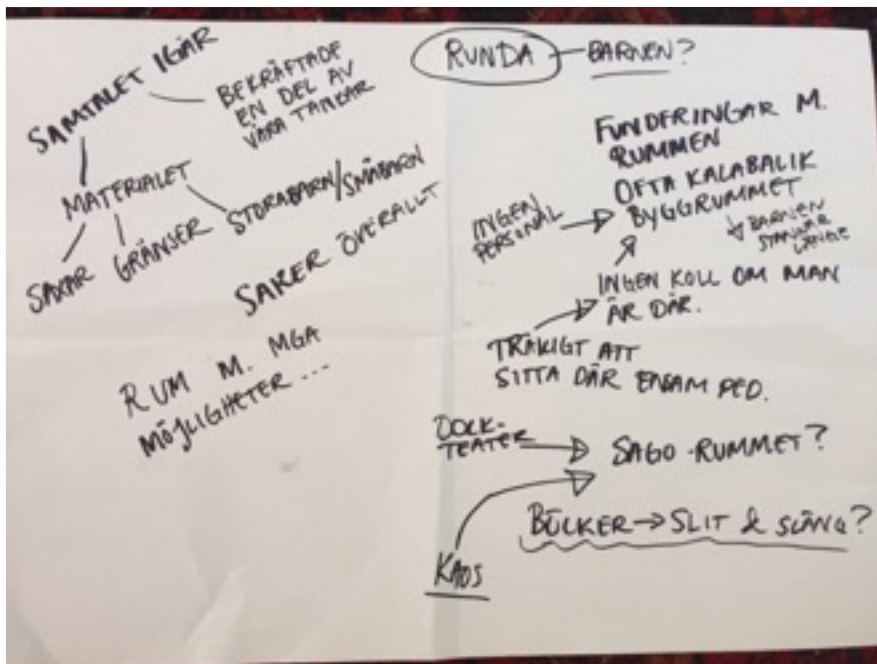 SAMTALET IGÅR
BEKRÄFTADE
EN DEL AV
VÅRA TANKAR
MATERIALET
SAXAR
GRÄNSER
STORABARN/SMÅBARN
SAKER ÖVERALLT
RUM M. MGA
MÖJLIGHETER...
RUNDA - BARNEN?
FUNDERINGAR M.
RUMMEN
OFTA KALABALIK
BYGGRUMMET
INGEN
PERSONAL
BARNEN
STANNAR
LÄNGE
INGEN KOLL OM MAN
ÄR DÄR.
TRÅKIGT ATT
SITTA DÄR ENSAM PED.
DOCK-
TEATER
SAGO-RUMMET?
BÖCKER → SLIT & SLÄNG?
KAOS